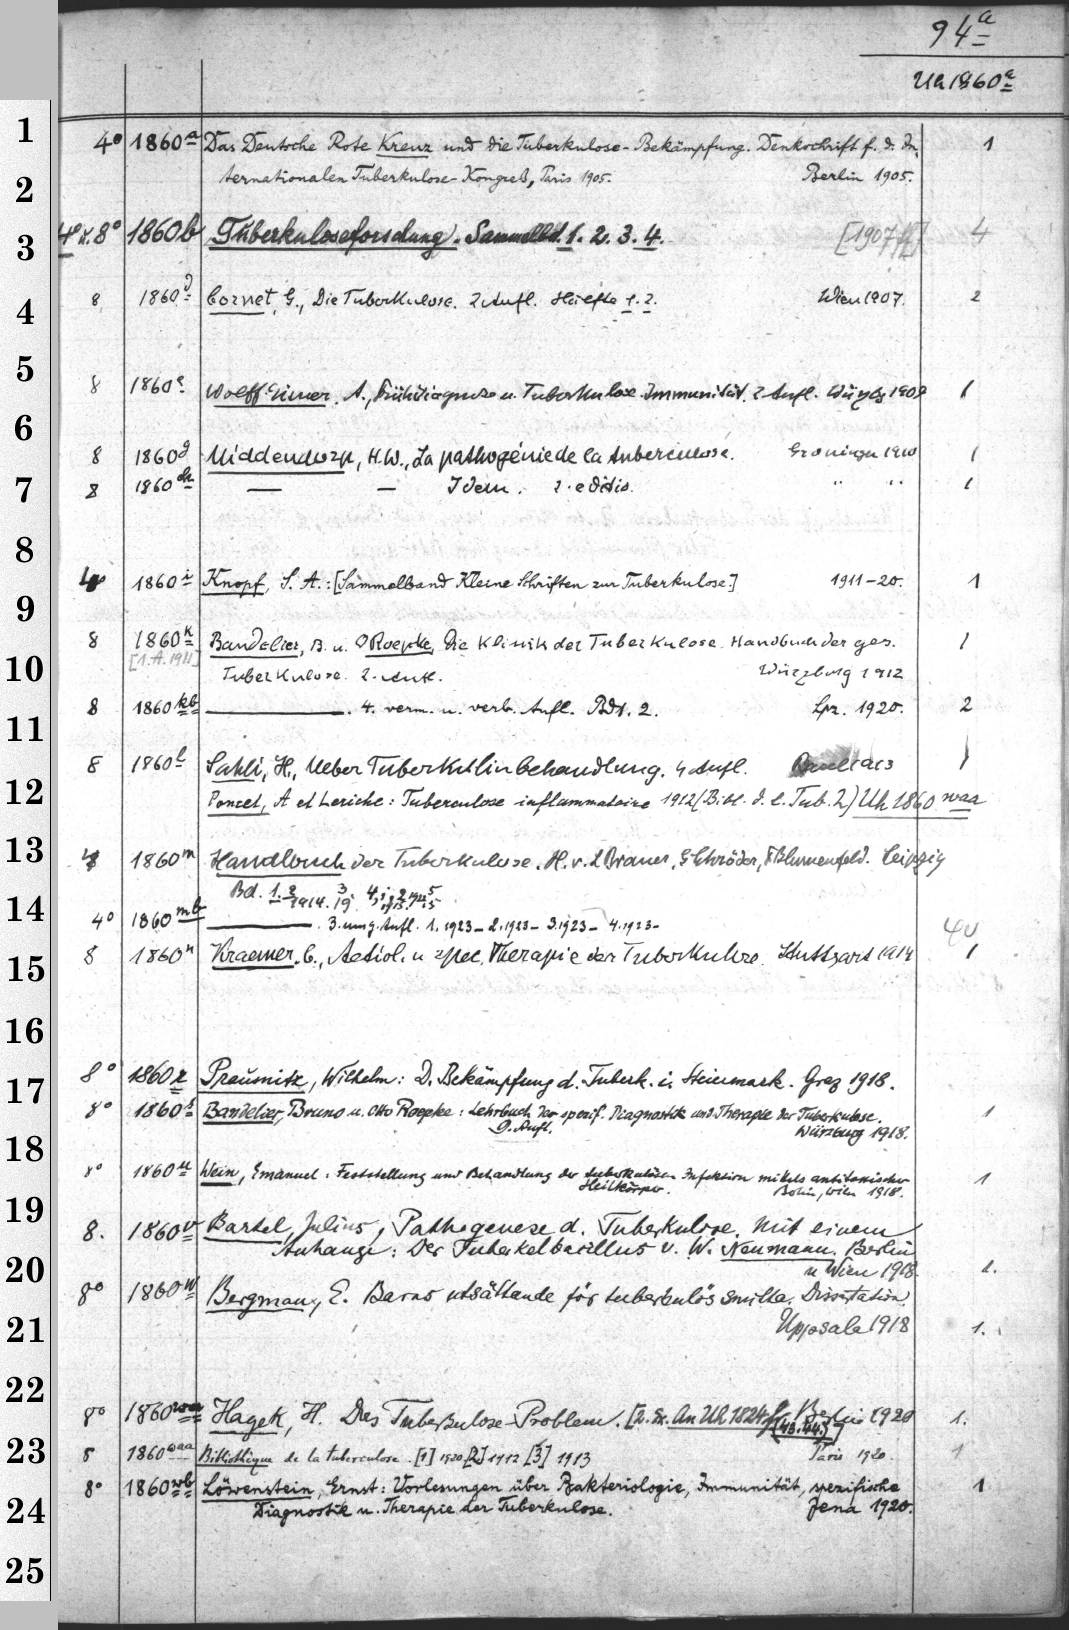 94a
Uh 1860a
1 4° 1860a Das Deutsche Rote Kreuz und die Tuberkulose-Bekämpfung. Denkschrift f. d. In- 1
2 ternationalen Tuberkulose-Kongreß, Paris 1905. Berlin 1905.
3 4° u. 8° 1860b Tuberkuloseforschung. Sammelbd. 1. 2. 3. 4. [1907 ff] 4
4 8 1860d Cornet, G., Die Tuberkulose. 2 Aufl. Hälfte 1. 2. Wien 1907. 2
5 8 1860e Wolff-Eisner, A., Frühdiagnose u. Tuberkulose-Immunität. 2 Aufl. Würzbg 1909 1
6 8 1860g Middendorp, H.W., La pathogénie de la tuberculose. Groningen 1910 1
7 8 1860h — — Idem. 2. editio. " " 1
8
9 4° 1860i Knopf, S. A.: [Sammelband Kleine Schriften zur Tuberkulose] 1911-20. 1
8 1860k Bandelier, B. u. O Roepke, Die Klinik der Tuberkulose. Handbuch der ges. 1
10 [1.A. 1911] Tuberkulose. 2. Aufl. Würzburg 1912
8 1860kb —. 4. verm. u. verb. Aufl. Bd 1. 2. Lpz. 1920. 2
11
8 1860l Sahli, H., Ueber Tuberkulinbehandlung. 4 Aufl. Basel 1913 1
12 Poncet, A et Leriche: Tuberculose inflammatoire 1912 (Bibl. d. l. Tub. 2) Uh 1860 waa
13 4° 1860m Handbuch der Tuberkulose. H. v. L Brauer, G Schröder, F Blumenfeld. Leipzig
Bd. 1. 2 1914. 3. 19 4,
14 4° 1860mb —. 3. umg. Aufl. 1. 1923- 2. 1923- 3. 1923- 4. 1923-
15 8 1860n Kraemer, C., Aetiol. u spec. Therapie der Tuberkulose. Stuttgart 1914 1
16
17 8° 1860r Prausnitz, Wilhelm: D. Bekämpfung d. Tuberk. in Steiermark. Graz 1918.
8° 1860s Bandelier, Bruno u. Otto Roepke: Lehrbuch der spezif. Diagnostik und Therapie der Tuberkulose. 1
9. Aufl. Würzburg 1918.
18 8° 1860u Wein, Emanuel: Feststellung und Behandlung der tuberkulösen Infektion mittels antitoxischer 1
Heilkörper. Berlin, Wien 1918.
19 8. 1860v Bartel, Julius, Pathogenese d. Tuberkulose. Mit einem
Anhange: Der Tuberkelbacillus v. W. Neumann. Berlin
20 u Wien 1918. 1.
8° 1860w Bergman, E. Barns utsättande för tuberkulös smitta. Dissertation.
21 Uppsala 1918 1.
22
8° 1860wa Hagek, H. Das Tuberkulose-Problem. [2. Ex. An Uh 1824 (43. 44.)] Berlin 1920 1.
23 8 1860waa Bibliothèque de la tuberculose. [1] 1920 [2] 1912 [3] 1913 Paris 1920. 1
24 8° 1860wb Löwenstein, Ernst: Vorlesungen über Bakteriologie, Immunität, spezifische 1
Diagnostik u. Therapie der Tuberkulose. Jena 1920.
25